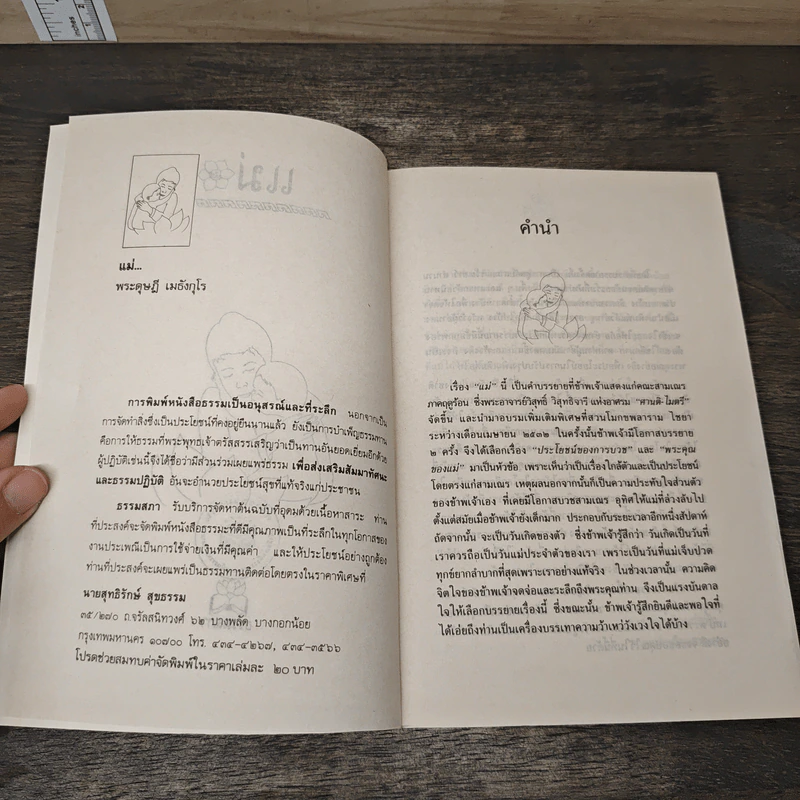 inches
1
2
แม่
แม่...
พระดุษฎี เมธังกุโร
การพิมพ์หนังสือธรรมเป็นอนุสรณ์และที่ระลึก นอกจากเป็น
การจัดทำสิ่งซึ่งเป็นประโยชน์ที่คงอยู่ยืนนานแล้ว ยังเป็นการบำเพ็ญธรรมทาน
คือการให้ธรรมที่พระพุทธเจ้าตรัสสรรเสริญว่าเป็นทานอันยอดเยี่ยมอีกด้วย
ผู้ปฏิบัติเช่นนี้จึงได้ชื่อว่ามีส่วนร่วมเผยแพร่ธรรม เพื่อส่งเสริมสัมมาทัศนะ
และธรรมปฏิบัติ อันจะอำนวยประโยชน์สุขที่แท้จริงแก่ประชาชน
ธรรมสภา รับบริการจัดหาต้นฉบับที่อุดมด้วยเนื้อหาสาระ ท่าน
ที่ประสงค์จะจัดพิมพ์หนังสือธรรมะที่ดีมีคุณภาพเป็นที่ระลึกในทุกโอกาสของ
งานประเพณีเป็นการใช้จ่ายเงินที่มีคุณค่า และให้ประโยชน์อย่างถูกต้อง
ท่านที่ประสงค์จะเผยแพร่เป็นธรรมทานติดต่อโดยตรงในราคาพิเศษที่
นายสุทธิรักษ์ สุขธรรม
๓๕/๒๗๐ ถ.จรัลสนิทวงศ์ ๖๒ บางพลัด บางกอกน้อย
กรุงเทพมหานคร ๑๐๗๐๐ โทร. ๔๓๔-๔๒๖๗, ๔๓๔-๓๕๖๖
โปรดช่วยสมทบค่าจัดพิมพ์ในราคาเล่มละ ๒๐ บาท
คำนำ
เรื่อง "แม่" นี้ เป็นคำบรรยายที่ข้าพเจ้าแสดงแก่คณะสามเณร
ภาคฤดูร้อน ซึ่งพระอาจารย์วิสุทธิ์ วิสุทธิจารี แห่งอาศรม "ศานติ-ไมตรี"
จัดขึ้น และนำมาอบรมเพิ่มเติมพิเศษที่สวนโมกขพลาราม ไชยา
ระหว่างเดือนเมษายน ๒๕๓๒ ในครั้งนั้นข้าพเจ้ามีโอกาสบรรยาย
๒ ครั้ง จึงได้เลือกเรื่อง "ประโยชน์ของการบวช" และ "พระคุณ
ของแม่" มาเป็นหัวข้อ เพราะเห็นว่าเป็นเรื่องใกล้ตัวและเป็นประโยชน์
โดยตรงแก่สามเณร เหตุผลนอกจากนั้นก็เป็นความประทับใจส่วนตัว
ของข้าพเจ้าเอง ที่เคยมีโอกาสบวชสามเณร อุทิศให้แม่ที่ล่วงลับไป
ตั้งแต่สมัยเมื่อข้าพเจ้ายังเด็กมาก ประกอบกับระยะเวลาอีกหนึ่งสัปดาห์
ถัดจากนั้น จะเป็นวันเกิดของตัว ซึ่งข้าพเจ้ารู้สึกว่า วันเกิดเป็นวันที่
เราควรถือเป็นวันแม่ประจำตัวของเรา เพราะเป็นวันที่แม่เจ็บปวด
ทุกข์ยากลำบากที่สุดเพราะเราอย่างแท้จริง ในช่วงเวลานั้น ความคิด
จิตใจของข้าพเจ้าจดจ่อและระลึกถึงพระคุณท่าน จึงเป็นแรงบันดาล
ใจให้เลือกบรรยายเรื่องนี้ ซึ่งขณะนั้น ข้าพเจ้ารู้สึกยินดีและพอใจที่
ได้เอ่ยถึงท่านเป็นเครื่องบรรเทาความว้าเหว่วังเวงใจได้บ้าง